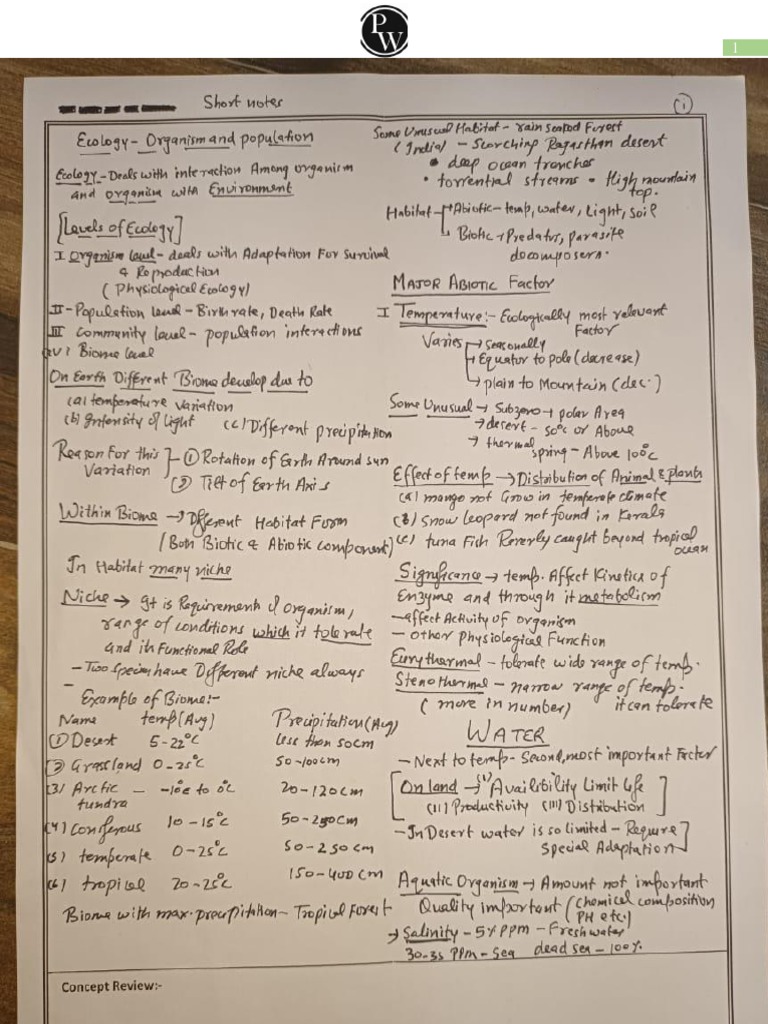 PW
1
Short notes
(1)
Ecology - Organism and population
Ecology - Deals with interaction Among organism
and organism with Environment
[Levels of Ecology]
I Organism level - deals with Adaptation For Survival
& Reproduction
(Physiological Ecology)
II - Population level - Birth rate, Death Rate
III Community level - population interactions
(IV) Biome level
On Earth Different Biome develop due to
(a) temperature variation
(b) Intensity of light (c) Different precipitation
Reason For this Variation
(1) Rotation of Earth Around sun
(2) Tilt of Earth Axis
Within Biome → Different Habitat Form
(Both Biotic & Abiotic component)
In Habitat many niche
Niche → It is Requirement of organism,
range of conditions which it tolerate
and its Functional Role
- Two species have Different niche always
- Example of Biome:-
Name temp (Avg) Precipitation (Avg)
(1) Desert 5-22°C less than 50cm
(2) Grassland 0-25°C 50-100cm
(3) Arctic tundra - -10c to 0°C 20-120cm
(4) Coniferous 10-15°C 50-250cm
(5) temperate 0-25°C 50-250cm
(6) tropical 20-25°C 150-400cm
Biome with max. precipitation - Tropical Forest
Some Unusual Habitat - rain Forest
(India) - Scorching Rajasthan desert
• deep ocean trenches
• torrential streams • High mountain
top.
Habitat → Abiotic - temp, water, Light, Soil
→ Biotic → Predators, parasite
decomposers.
MAJOR ABIOTIC Factor
I Temperature:- Ecologically most relevant
Factor
Varies → Seasonally
→ Equator to pole (decrease)
→ plain to Mountain (dec.)
Some Unusual → Subzero → polar Area
→ desert - 50°C or Above
→ thermal spring - Above 100°C
Effect of temp → Distribution of Animal & plants
(a) mango not Grow in temperate climate
(b) Snow leopard not found in Kerala
(c) tuna Fish Rarerly caught beyond tropical
ocean
Significance → temp. Affect Kinetics of
Enzyme and through it metabolism
- affect Activity of organism
- Other Physiological Function
Eurythermal - tolerate wide range of temp.
Stenothermal - narrow range of temp.
(more in number) it can tolerate
WATER
- Next to temp - Second, most important Factor
[On land → (i) Availibility Limit life
(ii) Productivity (iii) Distribution]
- In Desert water is so limited - Require
Special Adaptation]
Aquatic Organism → Amount not important
Quality important (Chemical composition
PH etc.)
→ Salinity - PPM - Fresh water
30-35 PPM - Sea dead sea - 100%
Concept Review:-